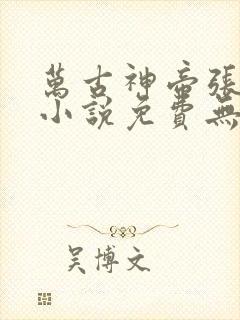 萬古神帝張
小說免費無
吴博文